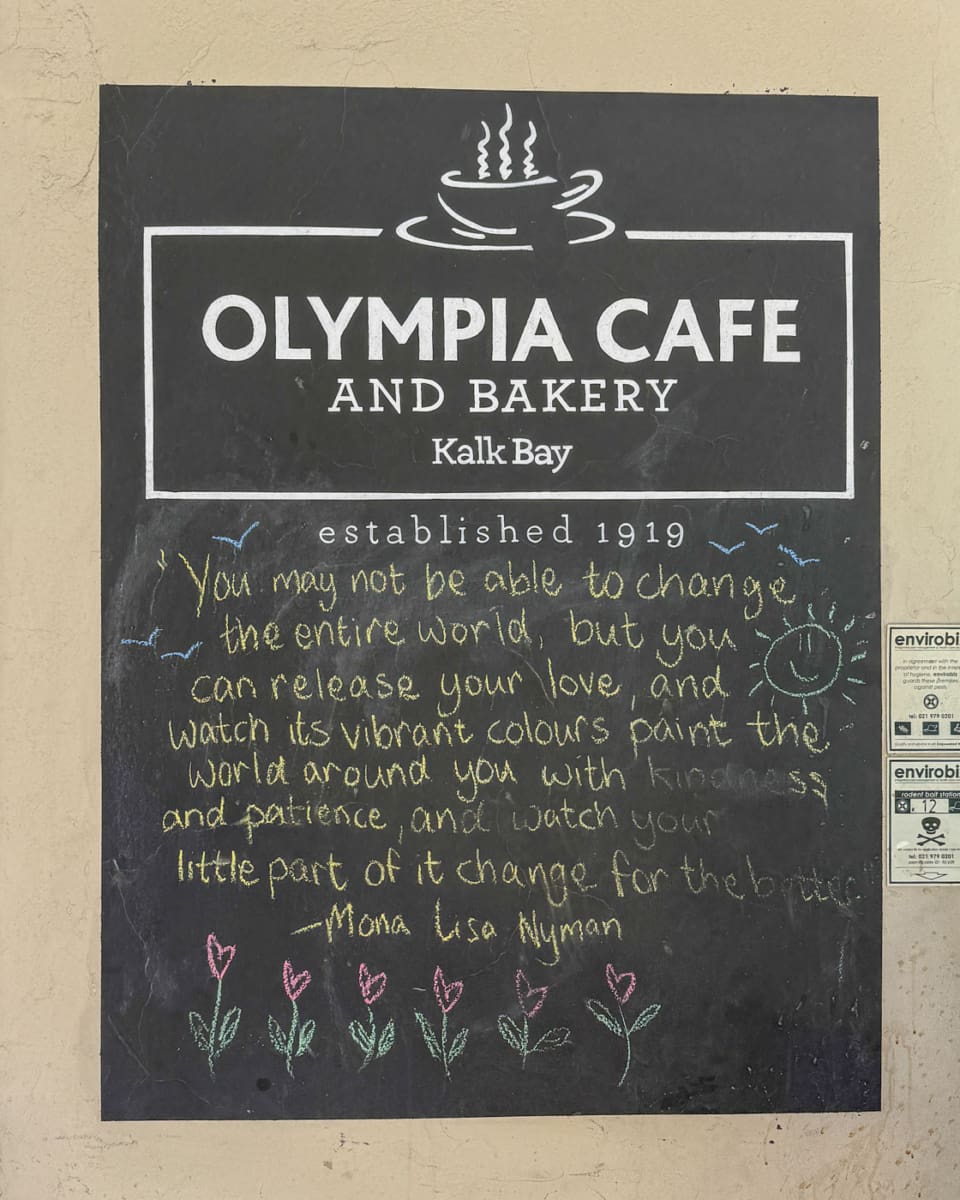 OLYMPIA CAFE
AND BAKERY
Kalk Bay
established 1919
"You may not be able to change
the entire world, but you
can release your love, and
watch its vibrant colours paint the
world around you with kindness
and patience, and watch your
little part of it change for the better.
-Mona Lisa Nyman
envirobi
In agreement with the
proprietor and in the
of hygiene, envirobiz
guards these premises
against pests.
tel: 021 979 0201
envirobi
rodent bait station
12
tel: 021 979 0201